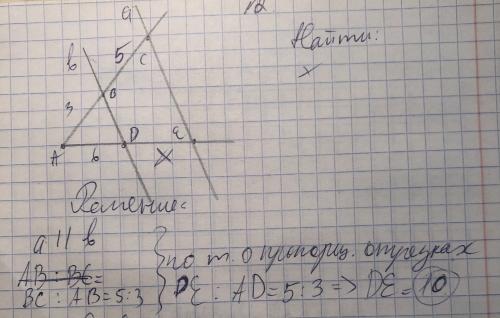 12
Найти:
x
a
b
5
C
3
B
D
E
A
6
x
Решение:
a || b
AB : BC =
BC : AB = 5:3
по т. о пропорц. отрезках
DE : AD = 5:3 => DE = 10